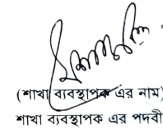 (শাখা ব্যবস্থাপক এর নাম)
শাখা ব্যবস্থাপক এর পদবী